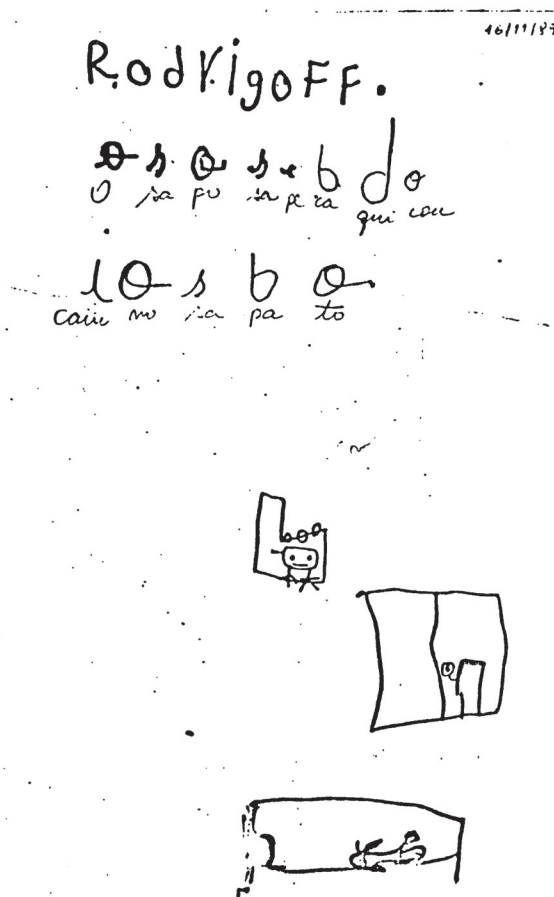 RodrigoFF.
o s o s e b d o
O sa po sa pe ca
qui cou
i o s b o
caiu no sa pa to